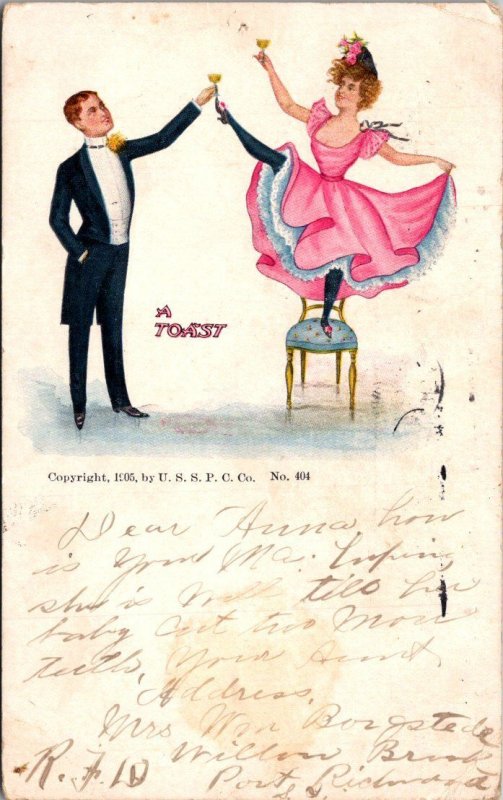 A
TOAST
Copyright, 1905, by U. S. S. P. C. Co. No. 404
Dear Anna how
is your Ma. hoping
she is well tell her
baby cut two more
teeth, your Aunt
Address,
Mrs Wm Borgstede
Willow Brook
R. F. D Port Richmond
S. I.